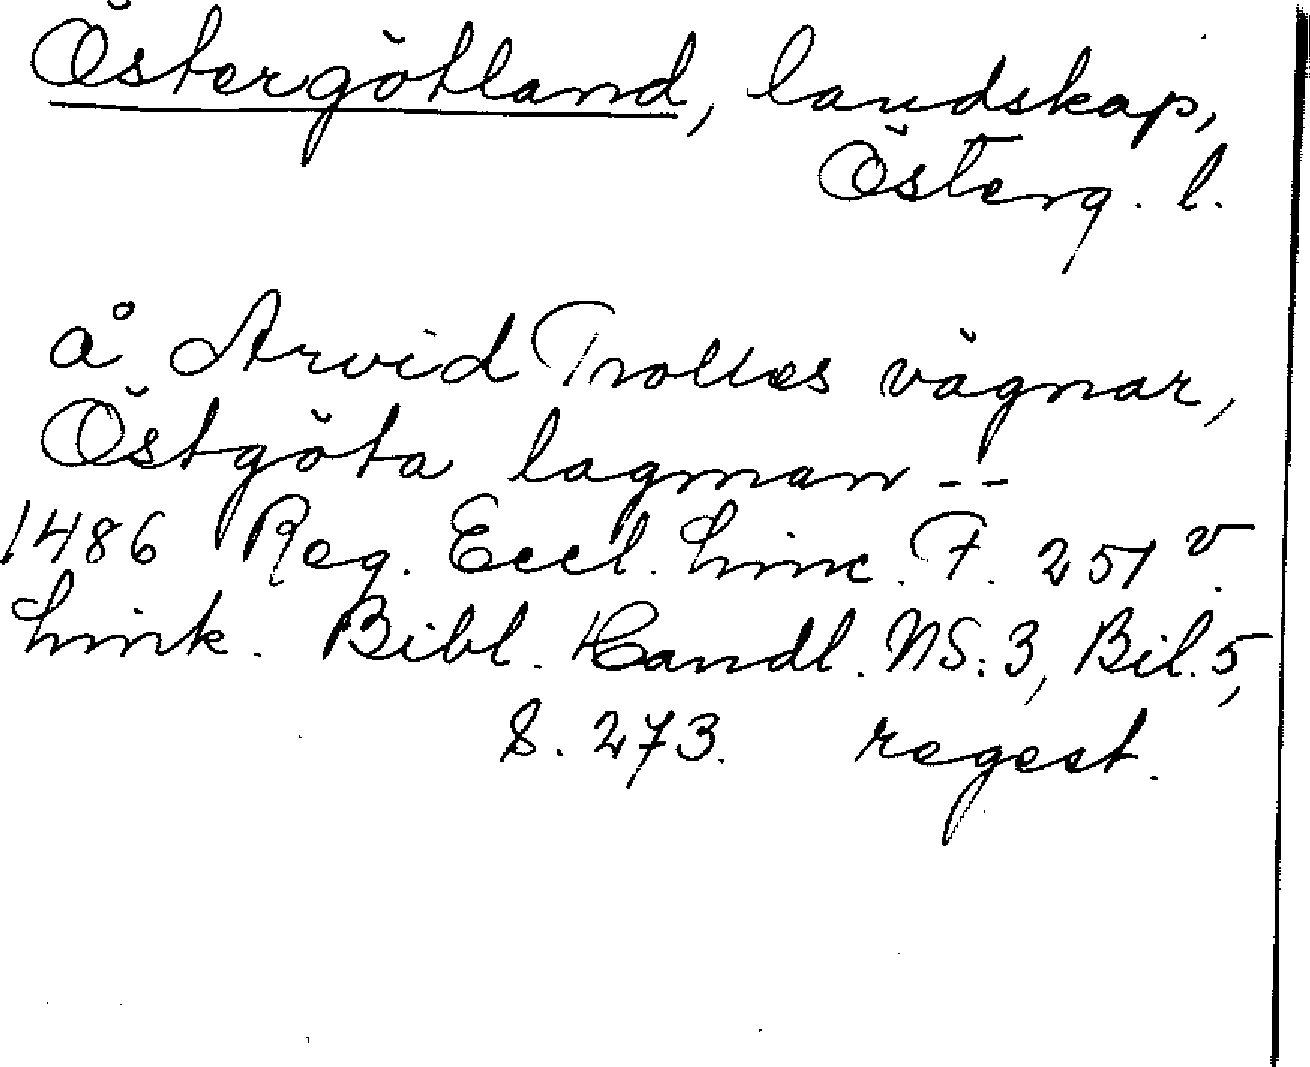 Östergötland, landskap,
Österg. l.
å Arvid Trolles vägnar,
Östgöta lagman --
1486 Reg. Eccl. Linc. F. 251 v.
Link. Bibl. Handl. NS: 3, Bil. 5,
S. 273. regest.